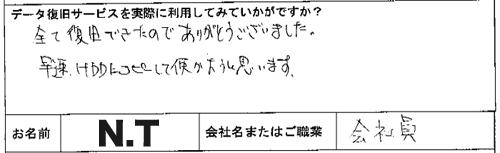 データ復旧サービスを実際に利用してみていかがですか?
全て復旧できたのでありがとうございました。
早速、HDDにコピーして使おうと思います。
お名前 N.T 会社名またはご職業 会社員